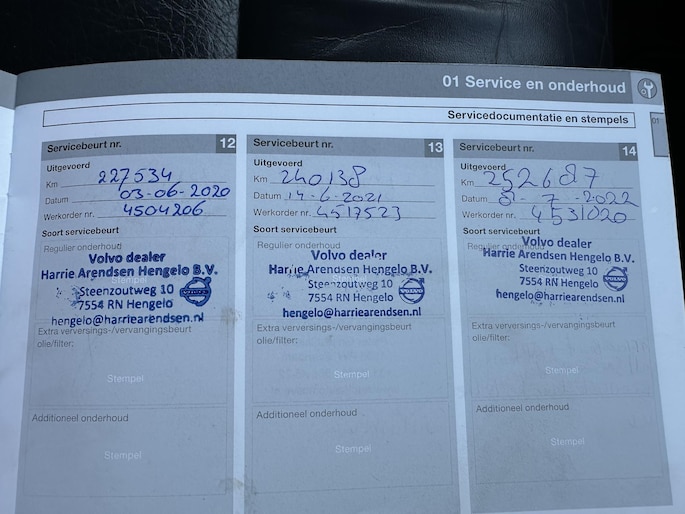 01 Service en onderhoud
01
Servicedocumentatie en stempels
Servicebeurt nr. 12
Uitgevoerd
Km 227534
Datum 03-06-2020
Werkorder nr. 4504206
Soort servicebeurt
Regulier onderhoud
Volvo dealer
Harrie Arendsen Hengelo B.V.
Steenzoutweg 10
7554 RN Hengelo
VOLVO
hengelo@harriearendsen.nl
Extra verversings-/vervangingsbeurt
olie/filter:
Stempel
Additioneel onderhoud
Stempel
Servicebeurt nr. 13
Uitgevoerd
Km 240138
Datum 14-6-2021
Werkorder nr. 4517523
Soort servicebeurt
Volvo dealer
Harrie Arendsen Hengelo B.V.
Steenzoutweg 10
7554 RN Hengelo
VOLVO
hengelo@harriearendsen.nl
Extra verversings-/vervangingsbeurt
olie/filter:
Stempel
Additioneel onderhoud
Stempel
Servicebeurt nr. 14
Uitgevoerd
Km 252687
Datum 7-2022
Werkorder nr. 4531020
Soort servicebeurt
Regulier onderhoud
Volvo dealer
Harrie Arendsen Hengelo B.V.
Steenzoutweg 10
7554 RN Hengelo
VOLVO
hengelo@harriearendsen.nl
Extra verversings-/vervangingsbeurt
olie/filter:
Stempel
Additioneel onderhoud
Stempel